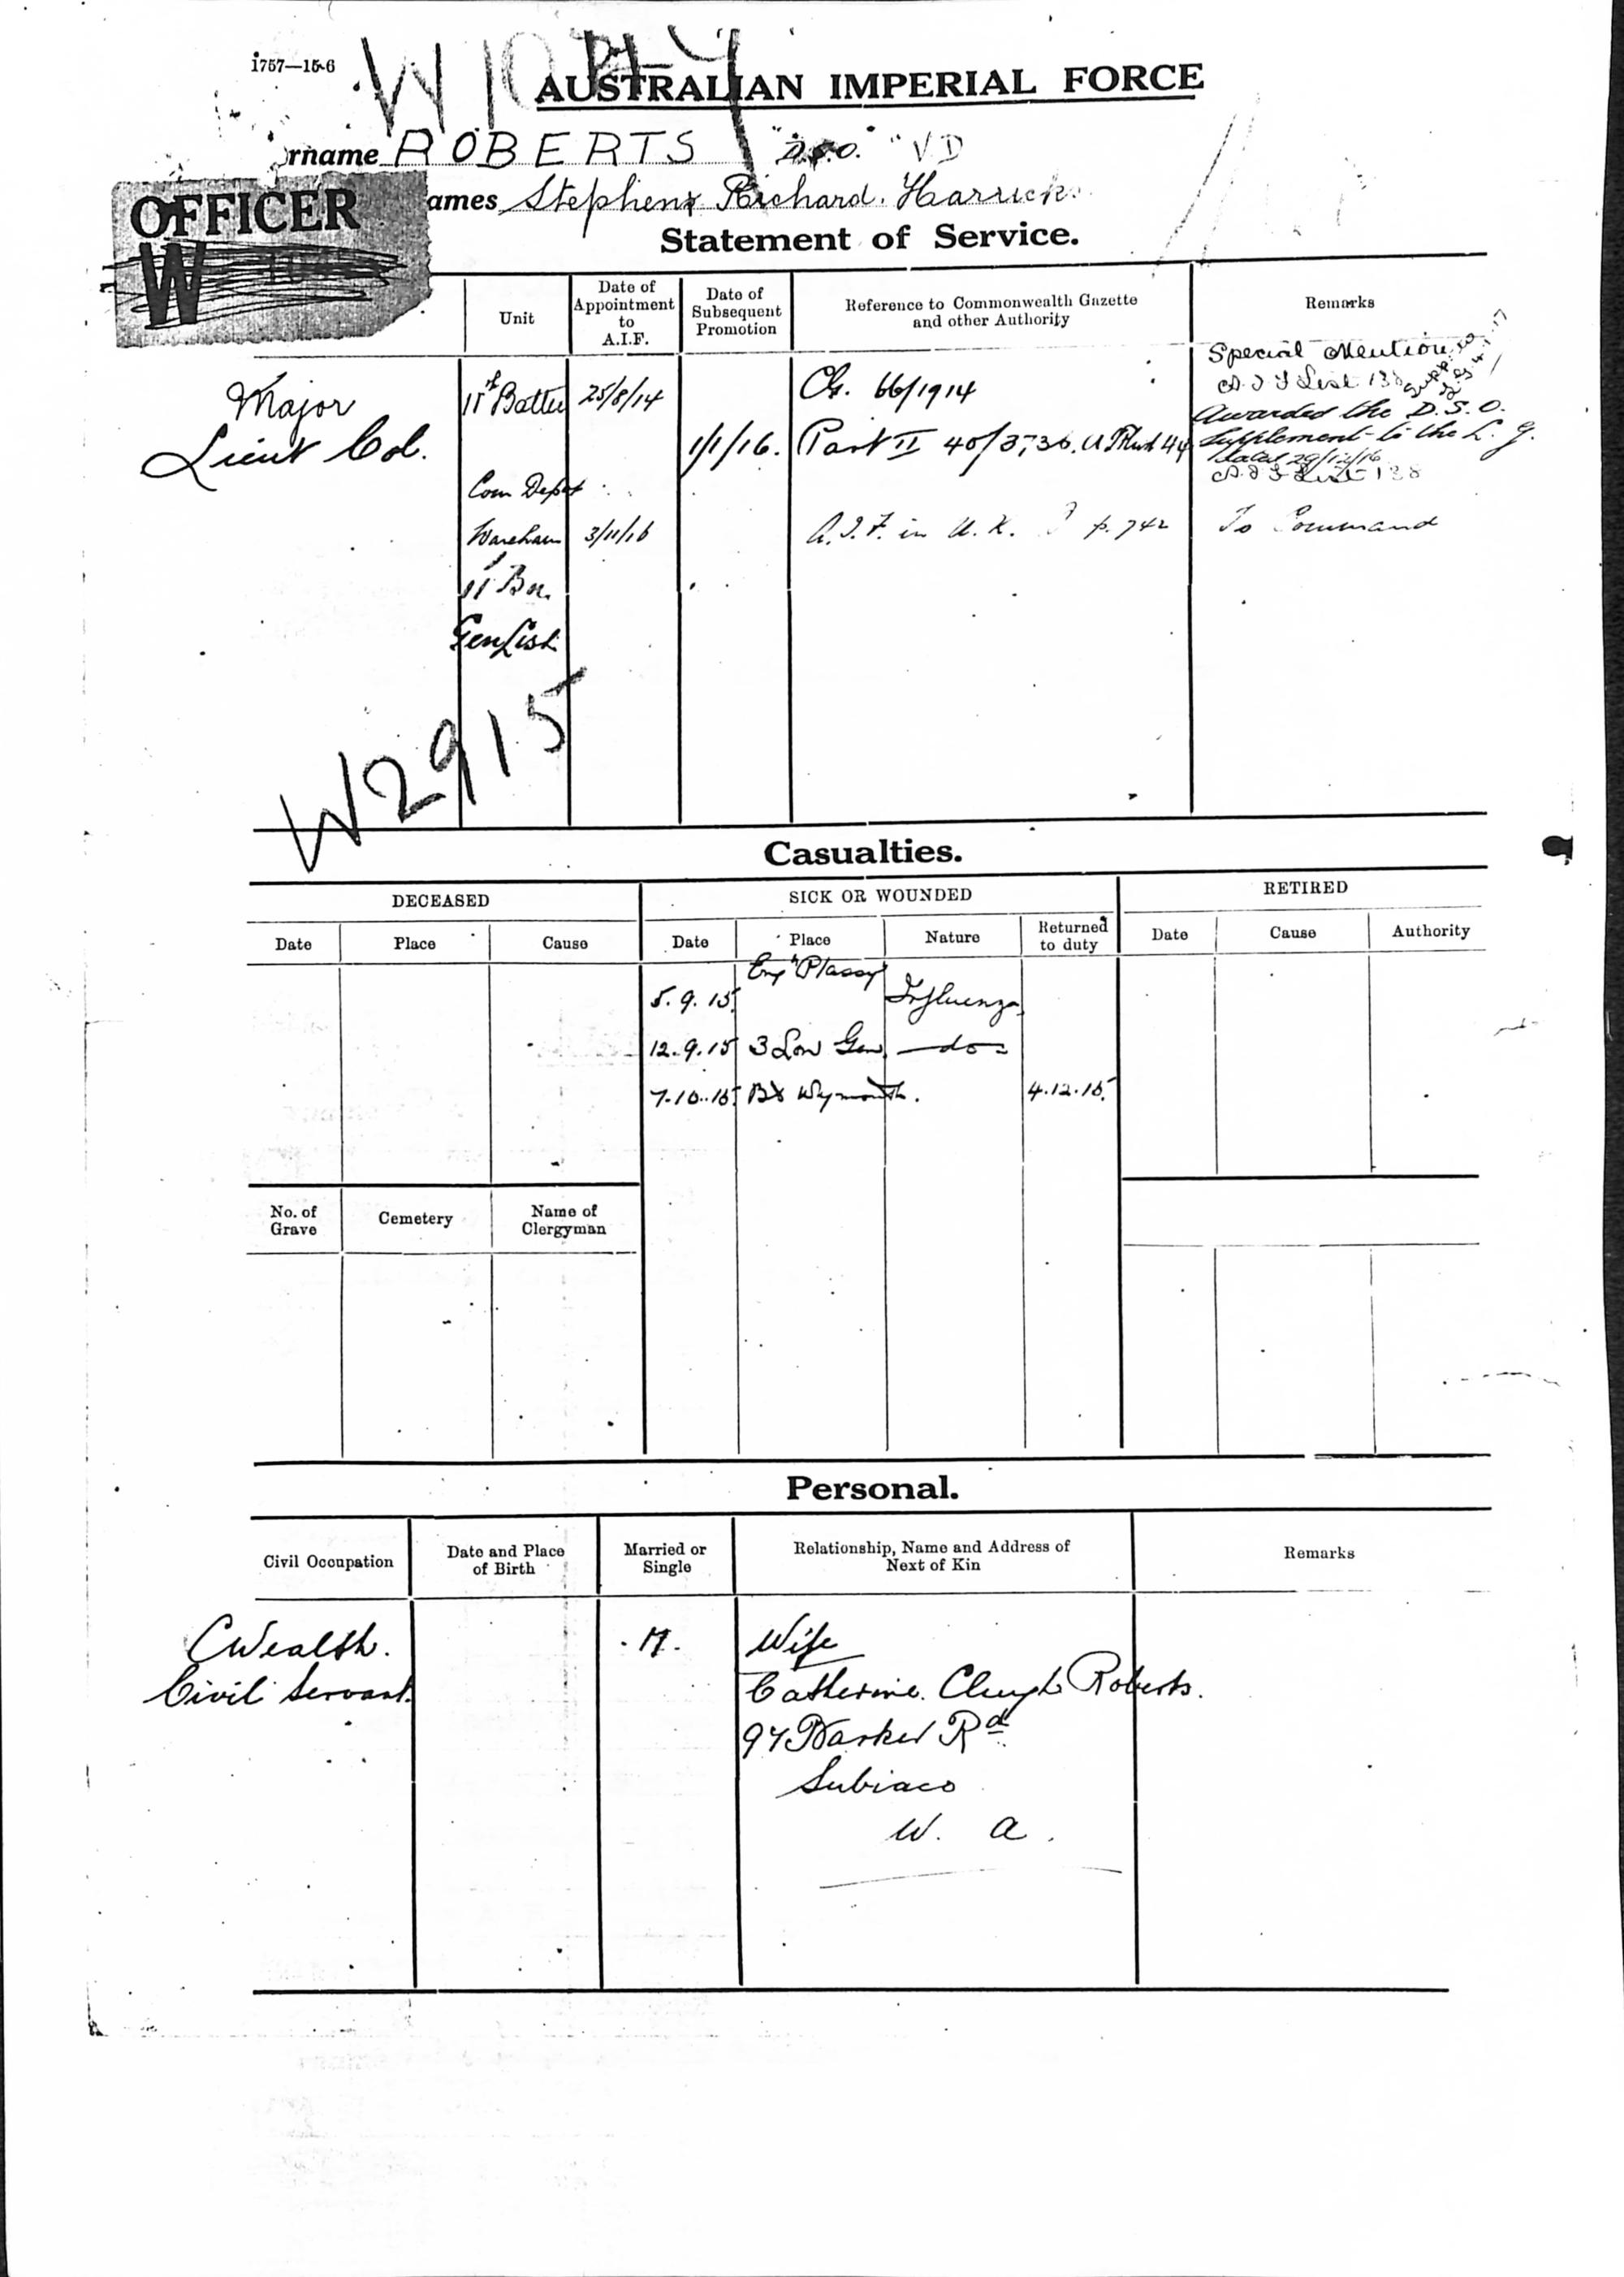 1757—15-6
AUSTRALIAN IMPERIAL FORCE
rname ROBERTS "D.S.O." "VD
OFFICER
W
ames Stephen Richard. Harrick.
Statement of Service.
Unit
Date of Appointment to A.I.F.
Date of Subsequent Promotion
Reference to Commonwealth Gazette and other Authority
Remarks
Special Mention
A.I.F List 138
Major 11 Battn 25/8/14 66/1914
Awarded the D.S.O.
Lieut Col. 1/1/16. Part II 40/
Supplement to the L. G.
dated 29/12/16
A.I.F List 138
Com Depot
Wareham 3/11/16 A.I.F. in U.K. p. 742 To Command
11 Bn.
Gen List
W2915
Casualties.
DECEASED
SICK OR WOUNDED
RETIRED
Date Place Cause Date Place Nature Returned to duty Date Cause Authority
5.9.15 "Plassy" Influenza
12.9.15 3 Lon Gen —do—
7.10.15 Wymouth. 4.12.15.
No. of Grave
Cemetery
Name of Clergyman
Personal.
Civil Occupation
Date and Place of Birth
Married or Single
Relationship, Name and Address of Next of Kin
Remarks
CWealth. M. Wife
Civil Servant. Catherine Roberts.
97 Barker Rd
Subiaco
W. A.